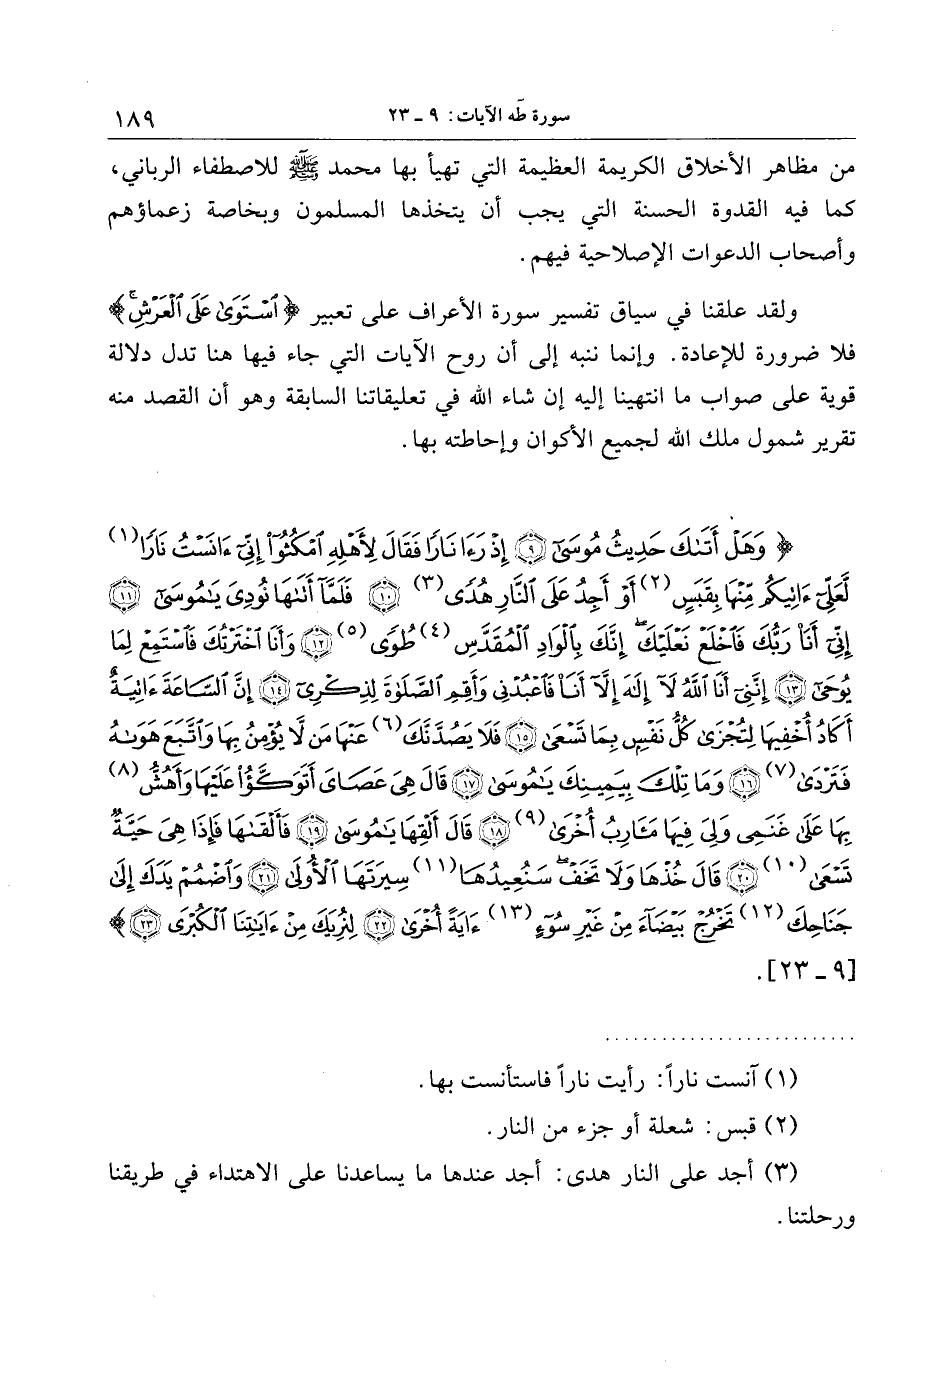 سورة طه الآيات: ٩ ـ ٢٣ ١٨٩
من مظاهر الأخلاق الكريمة العظيمة التي تهيأ بها محمد ﷺ للاصطفاء الرباني،
كما فيه القدوة الحسنة التي يجب أن يتخذها المسلمون وبخاصة زعماؤهم
وأصحاب الدعوات الإصلاحية فيهم.
ولقد علقنا في سياق تفسير سورة الأعراف على تعبير ﴿ٱسْتَوَىٰ عَلَى ٱلْعَرْشِۚ﴾
فلا ضرورة للإعادة. وإنما ننبه إلى أن روح الآيات التي جاء فيها هنا تدل دلالة
قوية على صواب ما انتهينا إليه إن شاء الله في تعليقاتنا السابقة وهو أن القصد منه
تقرير شمول ملك الله لجميع الأكوان وإحاطته بها.
﴿ وَهَلْ أَتَىٰكَ حَدِيثُ مُوسَىٰٓ ٩ إِذْ رَءَا نَارًا فَقَالَ لِأَهْلِهِ ٱمْكُثُوٓا۟ إِنِّىٓ ءَانَسْتُ نَارًا (١)
لَّعَلِّىٓ ءَاتِيكُم مِّنْهَا بِقَبَسٍ (٢) أَوْ أَجِدُ عَلَى ٱلنَّارِ هُدًى (٣) ١٠ فَلَمَّآ أَتَىٰهَا نُودِىَ يَـٰمُوسَىٰٓ ١١
إِنِّىٓ أَنَا۠ رَبُّكَ فَٱخْلَعْ نَعْلَيْكَۖ إِنَّكَ بِٱلْوَادِ ٱلْمُقَدَّسِ (٤) طُوًى (٥) ١٢ وَأَنَا ٱخْتَرْتُكَ فَٱسْتَمِعْ لِمَا
يُوحَىٰٓ ١٣ إِنَّنِىٓ أَنَا ٱللَّهُ لَآ إِلَـٰهَ إِلَّآ أَنَا۠ فَٱعْبُدْنِى وَأَقِمِ ٱلصَّلَوٰةَ لِذِكْرِىٓ ١٤ إِنَّ ٱلسَّاعَةَ ءَاتِيَةٌ
أَكَادُ أُخْفِيهَا لِتُجْزَىٰ كُلُّ نَفْسٍۭ بِمَا تَسْعَىٰ ١٥ فَلَا يَصُدَّنَّكَ (٦) عَنْهَا مَن لَّا يُؤْمِنُ بِهَا وَٱتَّبَعَ هَوَىٰهُ
فَتَرْدَىٰ (٧) ١٦ وَمَا تِلْكَ بِيَمِينِكَ يَـٰمُوسَىٰ ١٧ قَالَ هِىَ عَصَاىَ أَتَوَكَّؤُا۟ عَلَيْهَا وَأَهُشُّ (٨)
بِهَا عَلَىٰ غَنَمِى وَلِىَ فِيهَا مَـَٔارِبُ أُخْرَىٰ (٩) ١٨ قَالَ أَلْقِهَا يَـٰمُوسَىٰ ١٩ فَأَلْقَىٰهَا فَإِذَا هِىَ حَيَّةٌ
تَسْعَىٰ (١٠) ٢٠ قَالَ خُذْهَا وَلَا تَخَفْۖ سَنُعِيدُهَا (١١) سِيرَتَهَا ٱلْأُولَىٰ ٢١ وَٱضْمُمْ يَدَكَ إِلَىٰ
جَنَاحِكَ (١٢) تَخْرُجْ بَيْضَآءَ مِنْ غَيْرِ سُوٓءٍ (١٣) ءَايَةً أُخْرَىٰ ٢٢ لِنُرِيَكَ مِنْ ءَايَـٰتِنَا ٱلْكُبْرَى ٢٣ ﴾
[٩ ـ ٢٣].
(١) آنست ناراً: رأيت ناراً فاستأنست بها.
(٢) قبس: شعلة أو جزء من النار.
(٣) أجد على النار هدى: أجد عندها ما يساعدنا على الاهتداء في طريقنا
ورحلتنا.